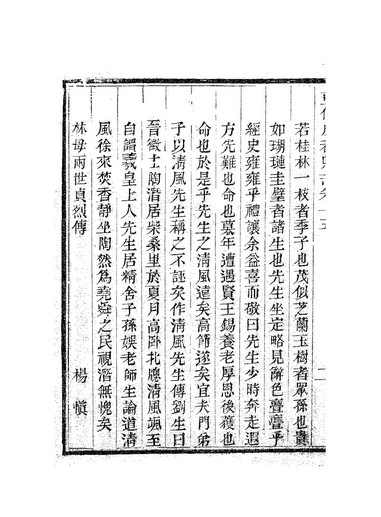 若桂林一枝者季子也茂似芝蘭玉樹者眾孫也貴
如瑚璉圭璧者諸生也先生坐定略見辭色亹亹乎
經史雍雍乎禮讓余益喜而敬曰先生少時奔走遐
方先難也命也暮年遭遇賢王錫養老厚恩後獲也
命也於是乎先生之清風遠矣高節遂矣宜夫門弟
子以清風先生稱之不誣矣作清風先生傳劉生曰
晉徵士陶潛居柴桑里於夏月高臥北牕清風颯至
自謂羲皇上人先生居精舍子孫娛老師生論道清
風徐來焚香靜坐陶然為堯舜之民視潛無愧矣
林母兩世貞烈傳 楊慎